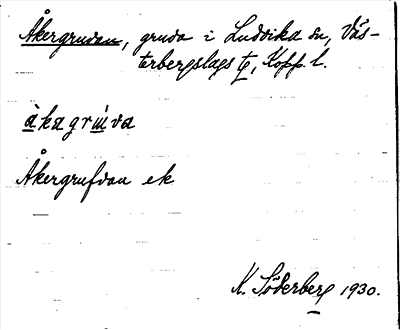 Åkergruvan, gruva i Ludvika sn, Väs-
terbergslags tg, Kopp. l.
åkagrùva
Åkergrufvan ek
K. Söderberg 1930.